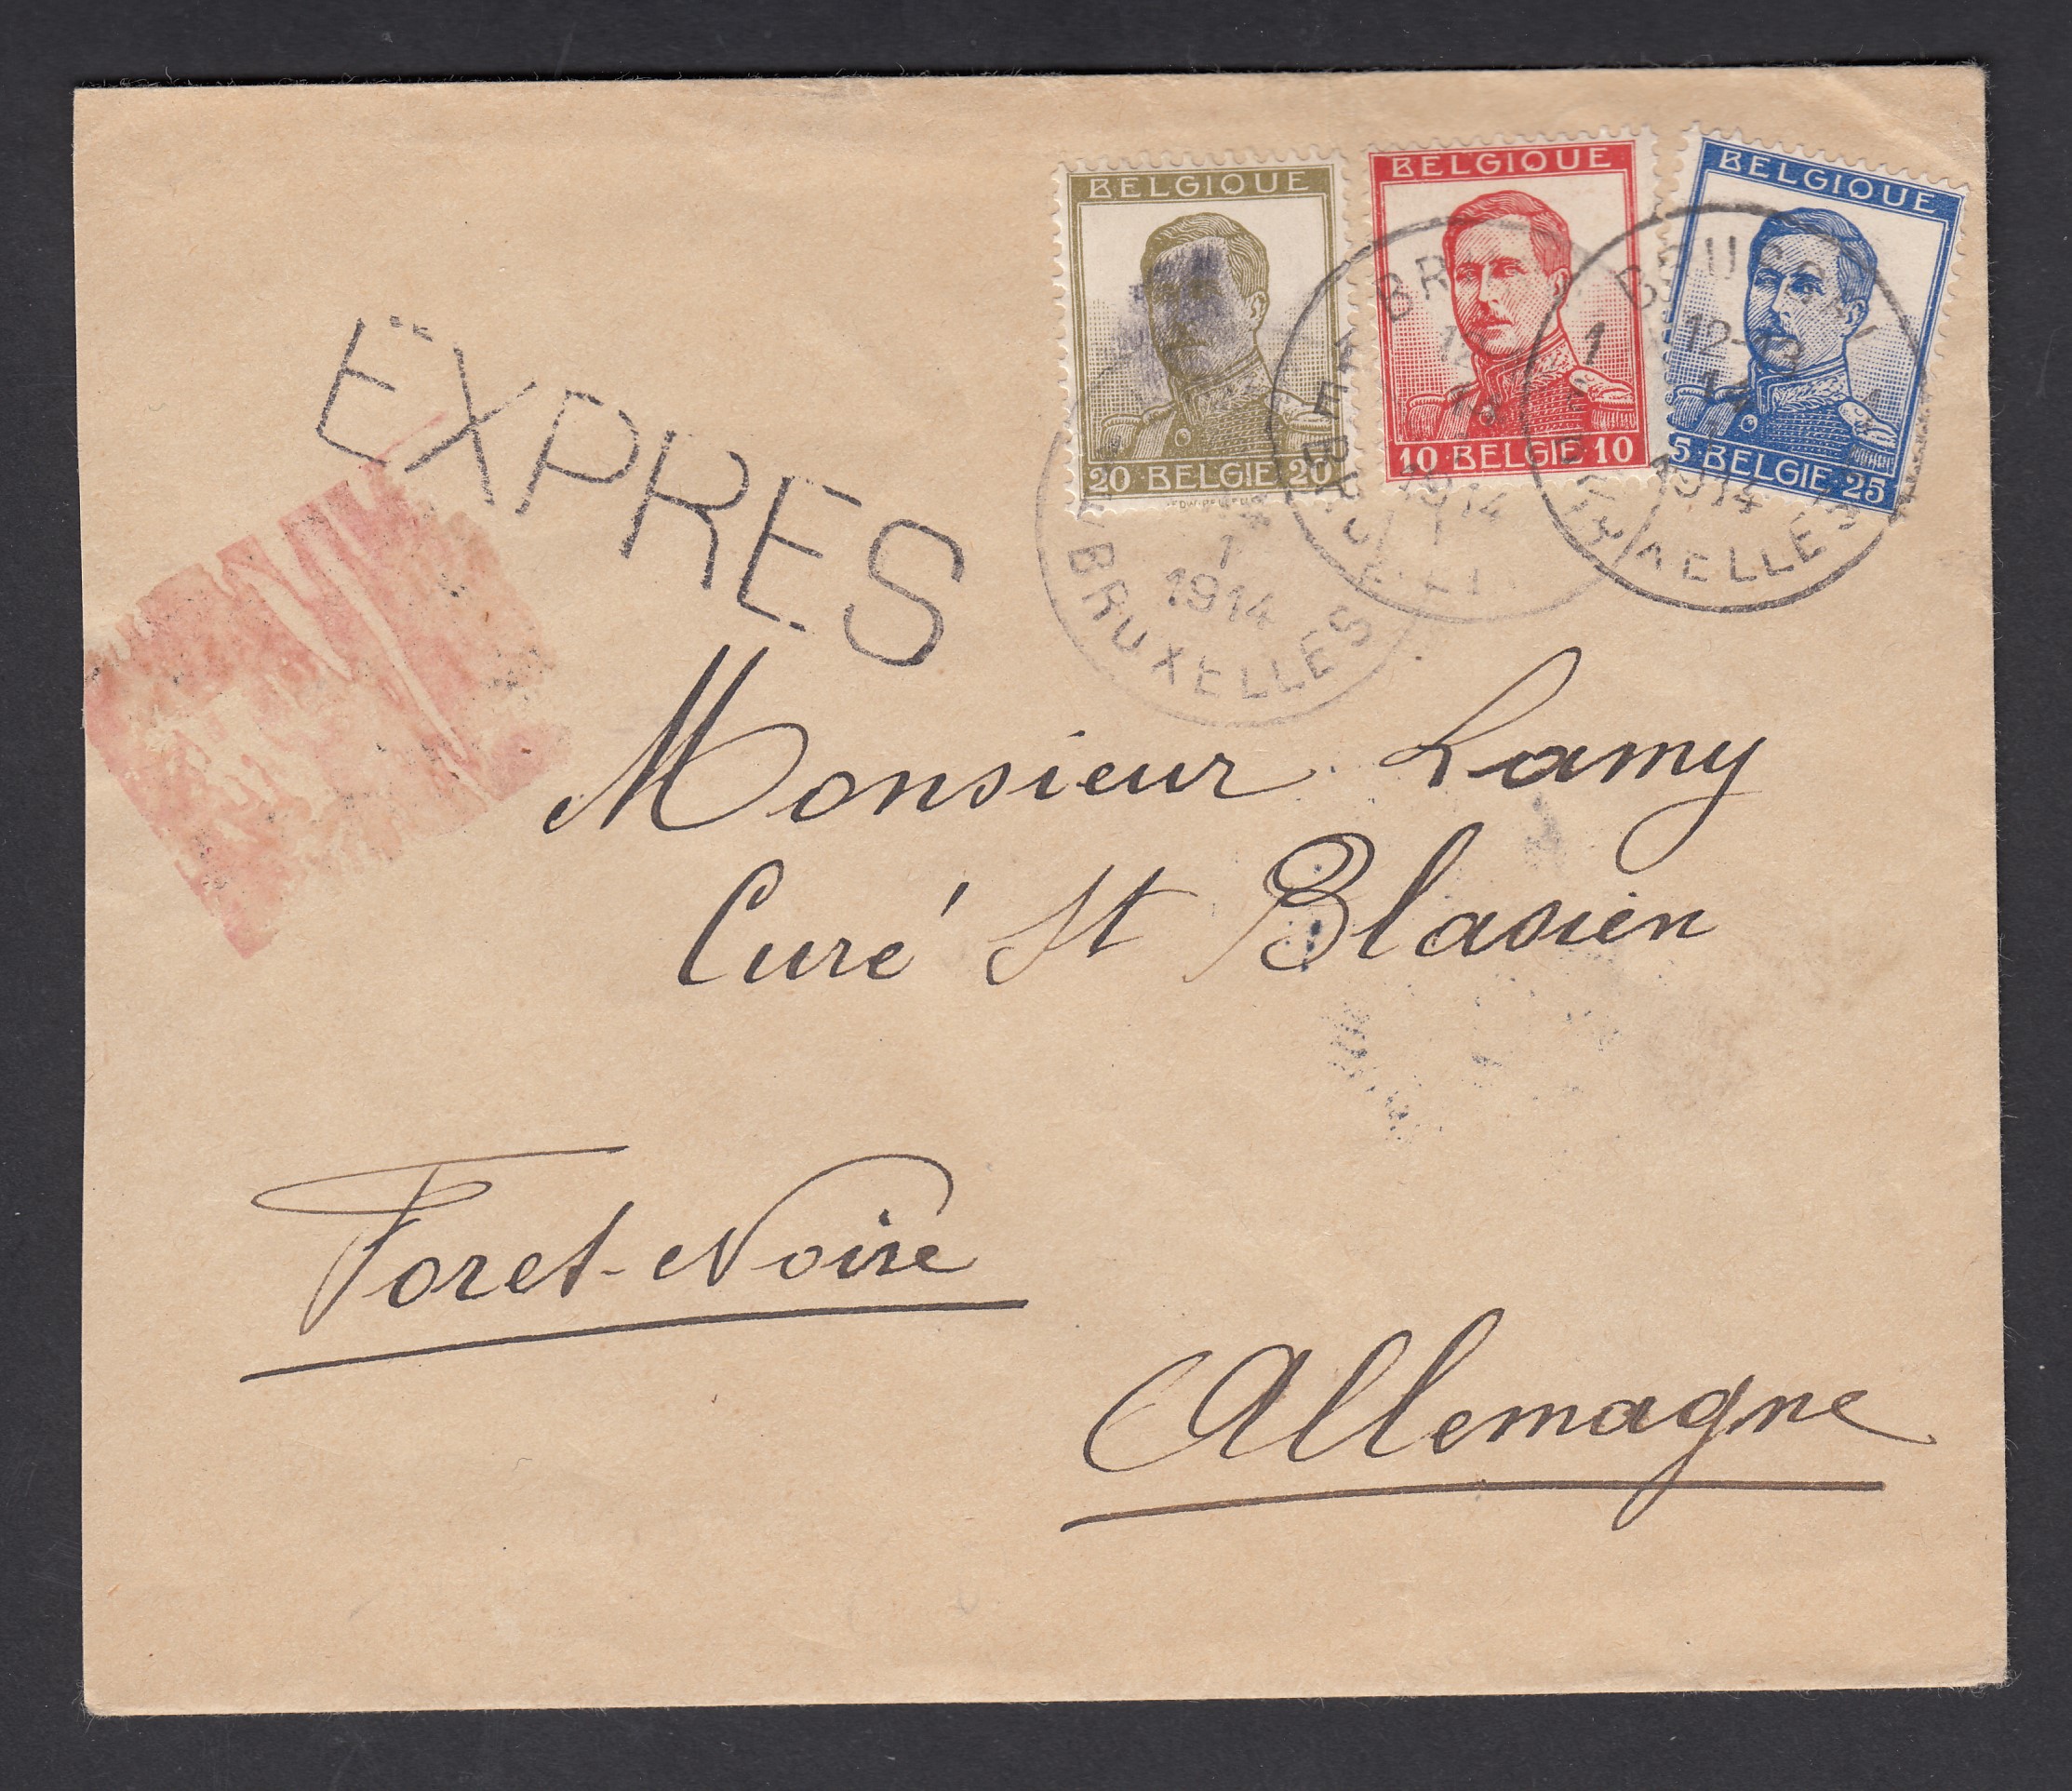 BELGIQUE
20 BELGIE 20
BELGIQUE
10 BELGIE 10
BELGIQUE
5 BELGIE 25
1
1914
BRUXELLES
1914
1
12-13
1914
EXPRES
Monsieur Lamy
Curé St Blasien
Foret-Noire
Allemagne